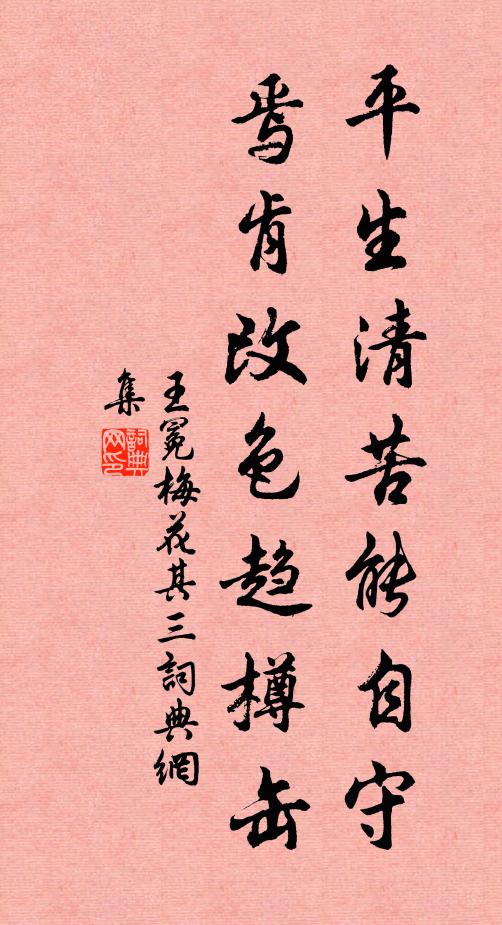 平生清苦能自守
焉肯改色趋樽缶
王冕梅花其三詞典網
集
詞典網印